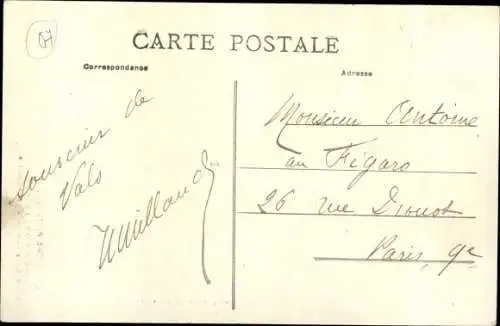 07
CARTE POSTALE
Correspondance
Adresse
souvenir de
Vals
Monsieur Antoine
au Figaro
26 rue Drouot
Paris, 9e